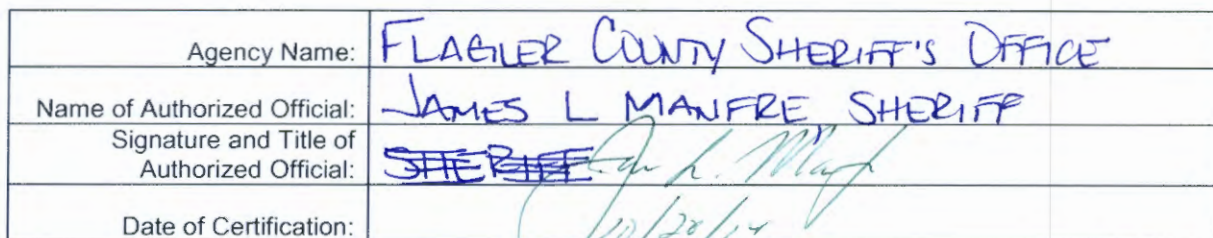 Agency Name: FLAGLER COUNTY SHERIFF'S OFFICE
Name of Authorized Official: JAMES L MANFRE SHERIFF
Signature and Title of
Authorized Official: SHERIFF
Date of Certification: 10/28/14